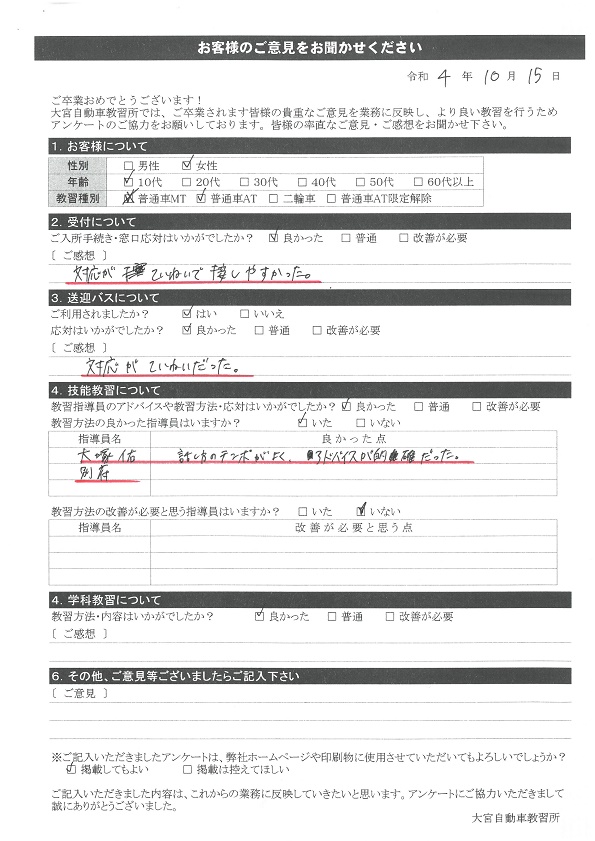 お客様のご意見をお聞かせください
令和 4 年 10 月 15 日
ご卒業おめでとうございます！
大宮自動車教習所では、ご卒業されます皆様の貴重なご意見を業務に反映し、より良い教習を行うため
アンケートのご協力をお願いしております。皆様の率直なご意見・ご感想をお聞かせ下さい。
1. お客様について
性別 □ 男性 ☑ 女性
年齢 ☑ 10代 □ 20代 □ 30代 □ 40代 □ 50代 □ 60代以上
教習種別 普通車MT ☑ 普通車AT □ 二輪車 □ 普通車AT限定解除
2. 受付について
ご入所手続き・窓口応対はいかがでしたか？ ☑ 良かった □ 普通 □ 改善が必要
〔 ご感想 〕
対応が ていねいで 接しやすかった。
3. 送迎バスについて
ご利用されましたか？ ☑ はい □ いいえ
応対はいかがでしたか？ ☑ 良かった □ 普通 □ 改善が必要
〔 ご感想 〕
対応が ていねいだった。
4. 技能教習について
教習指導員のアドバイスや教習方法・応対はいかがでしたか？ ☑ 良かった □ 普通 □ 改善が必要
教習方法の良かった指導員はいますか？ ☑ いた □ いない
指導員名 良かった点
大塚佑 話し方のテンポがよく、アドバイスが的確だった。
別府
教習方法の改善が必要と思う指導員はいますか？ □ いた ☑ いない
指導員名 改善が必要と思う点
4. 学科教習について
教習方法・内容はいかがでしたか？ ☑ 良かった □ 普通 □ 改善が必要
〔 ご感想 〕
6. その他、ご意見等ございましたらご記入下さい
〔 ご意見 〕
※ご記入いただきましたアンケートは、弊社ホームページや印刷物に使用させていただいてもよろしいでしょうか？
☑ 掲載してもよい □ 掲載は控えてほしい
ご記入いただきました内容は、これからの業務に反映していきたいと思います。アンケートにご協力いただきまして
誠にありがとうございました。
大宮自動車教習所